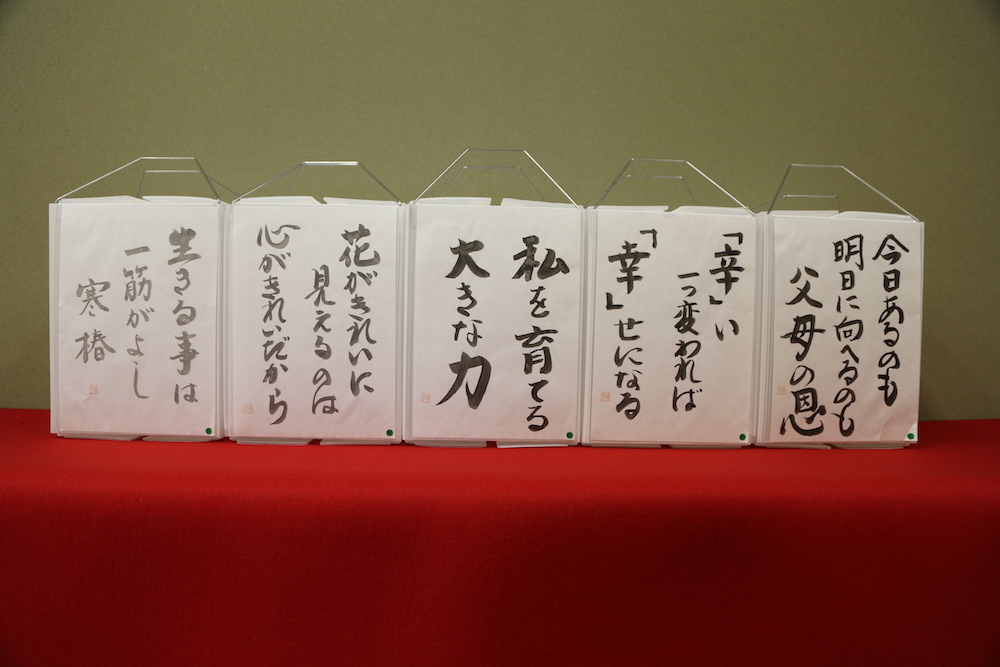 今日あるのも
明日に向へるのも
父母の恩
「辛」い
一つ変われば
「幸」せになる
私を育てる
大きな力
花がきれいに
見えるのは
心がきれいだから
生きる事は
一筋がよし
寒椿